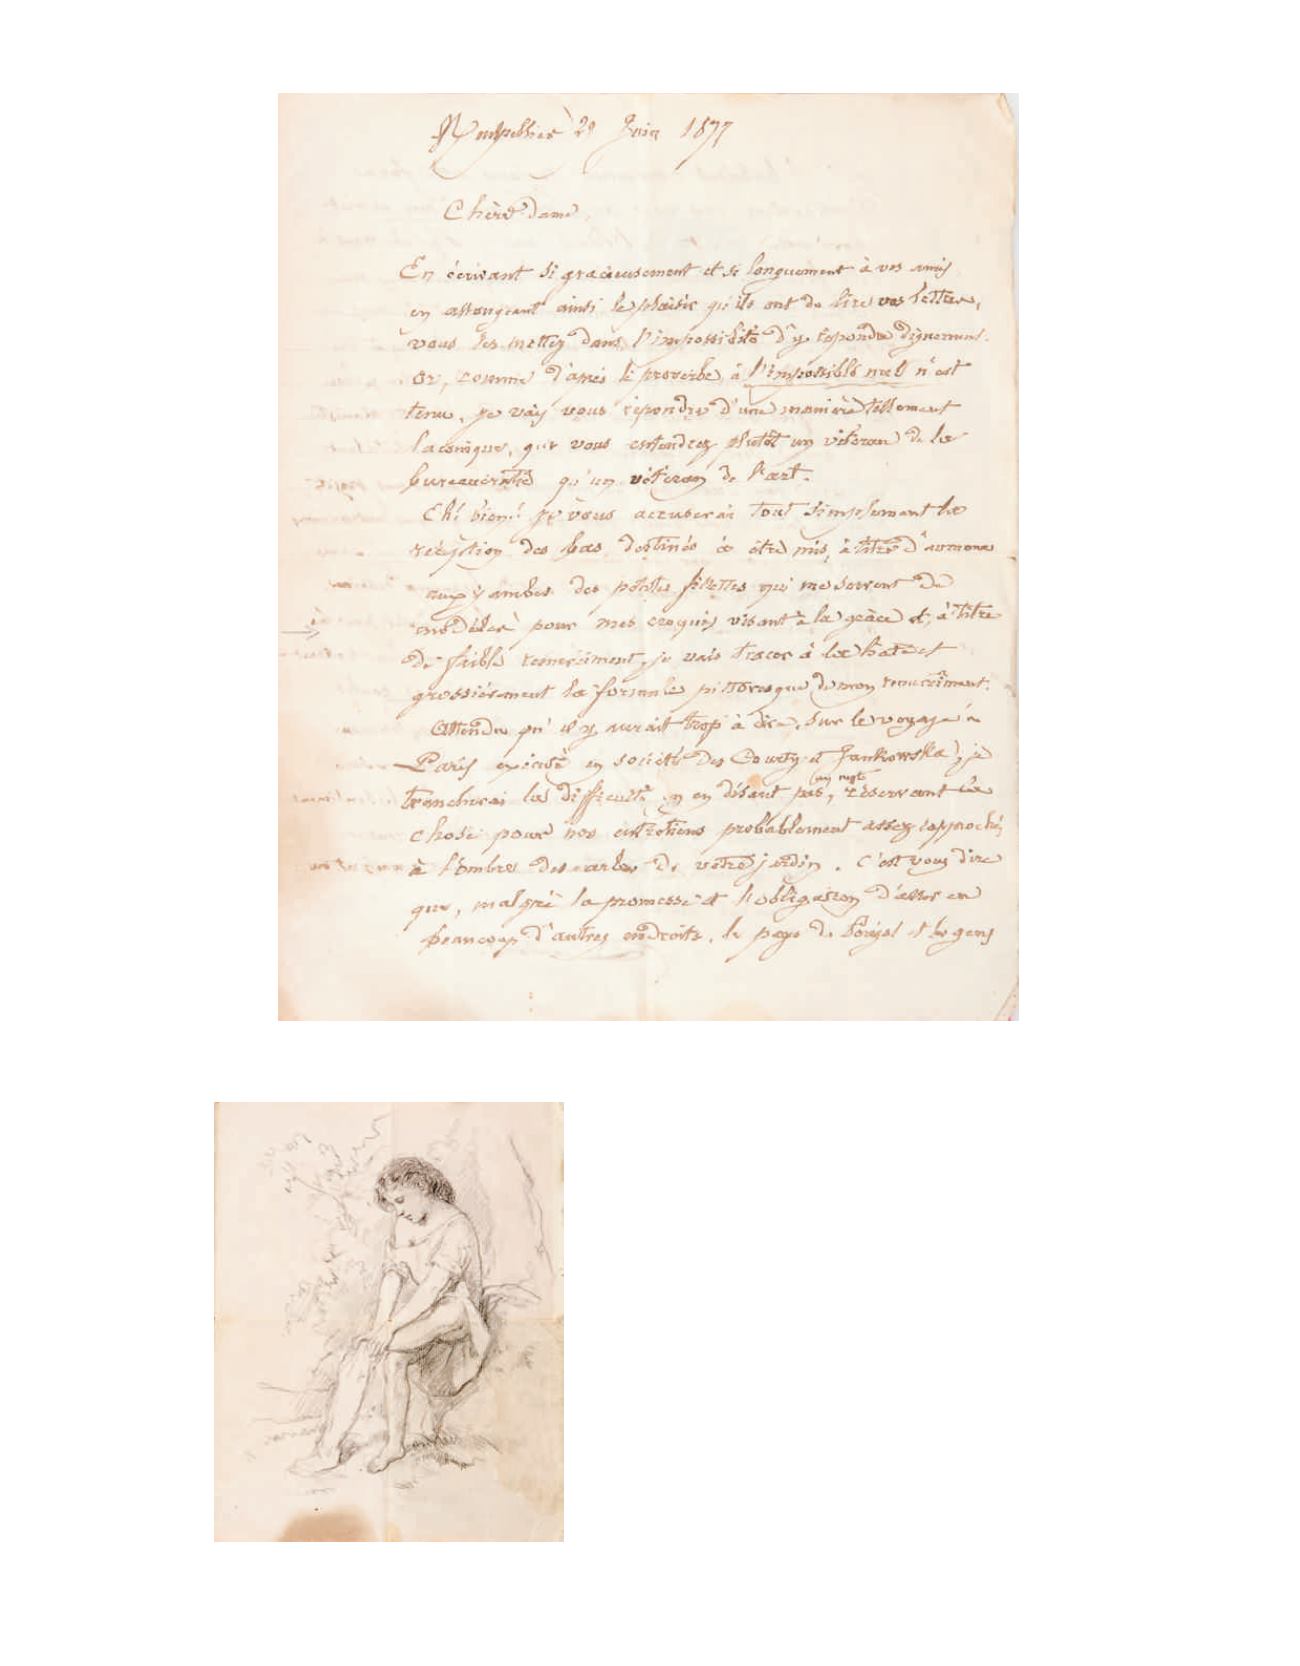 Montpellier 29 Juin 1877
Chère dame,
En écrivant si gracieusement et si longuement à vos amis
en allongeant ainsi le plaisir qu'ils ont de lire vos lettres,
vous les mettez dans l'impossibilité d'y répondre dignement.
Or, comme d'après le proverbe, à l'impossible nul n'est
tenu, je vais vous répondre d'une manière tellement
laconique, que vous entendrez plutôt un vétéran de la
bureaucratie qu'un vétéran de l'art.
Eh! bien! je vous accuserai tout simplement la
réception des bas destinés à être mis, à titre d'aumone
aux jambes des petites fillettes qui me servent de
modèles pour mes croquis visant à la grâce et, à titre
de faible remerciment, je vais tracer à la hate et
grossièrement la formule pittoresque de mon remerciment.
Attendu qu'il y aurait trop à dire, sur le voyage à
Paris exécuté en société des Courty et Jankowska, je
trancherai la difficulté en en disant pas, réservant la
chose pour nos entretiens probablement assez rapprochés
à l'ombre des arbres de votre jardin. C'est vous dire
que, malgré la promesse et l'obligation d'aller en
beaucoup d'autres endroits, le pays de et les gens